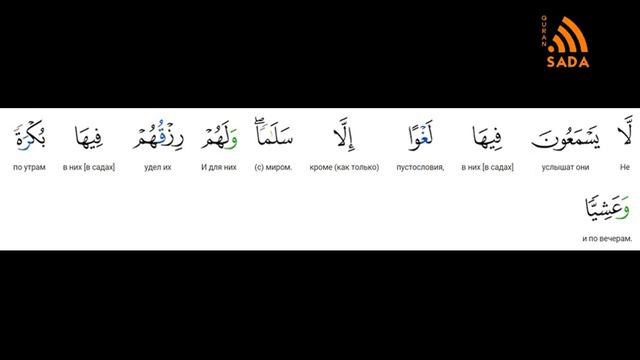 QURAN
SADA
لَّا يَسْمَعُونَ فِيهَا لَغْوًا إِلَّا سَلَٰمًا ۖ وَلَهُمْ رِزْقُهُمْ فِيهَا بُكْرَةً
Не услышат они в них [в садах] пустословия, кроме (как только) (с) миром. И для них удел их в них [в садах] по утрам
وَعَشِيًّا
и по вечерам.